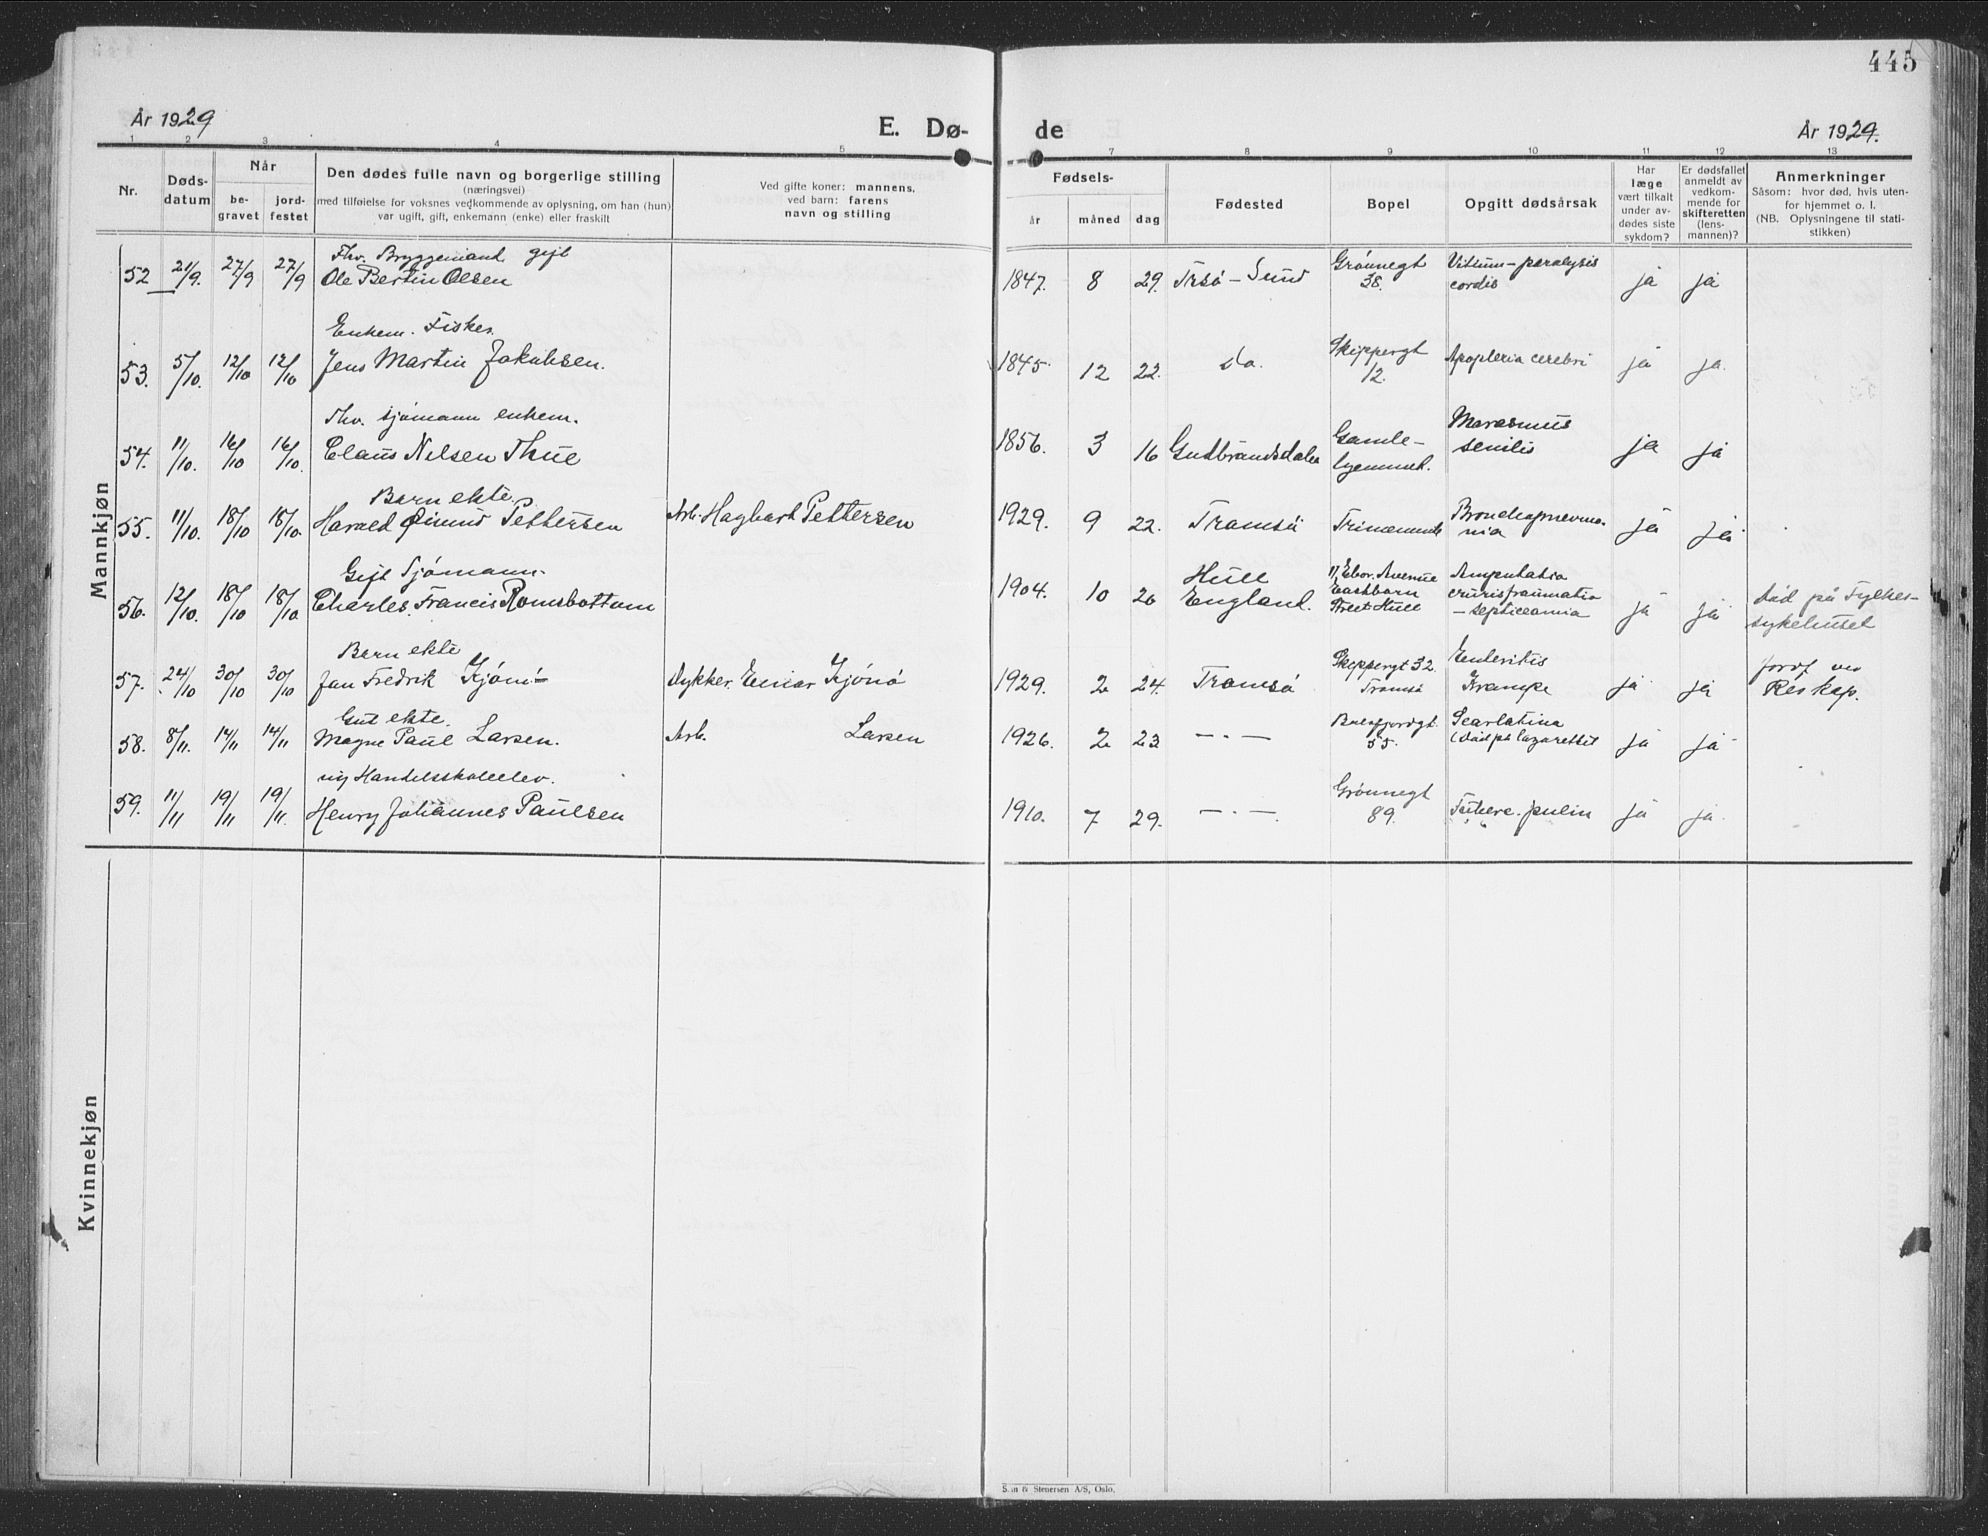 445
År 1929
E. Dø-
de
År 1929.
1 2 3 4 5 7 8 9 10 11 12 13
Nr.
Døds-
datum
Når
be-
gravet
jord-
festet
Den dødes fulle navn og borgerlige stilling
(næringsvei)
med tilføielse for voksnes vedkommende av oplysning, om han (hun)
var ugift, gift, enkemann (enke) eller fraskilt
Ved gifte koner: mannens,
ved barn: farens
navn og stilling
Fødsels-
år
måned
dag
Fødested
Bopel
Opgitt dødsårsak
Har
læge
vært tilkalt
under av-
dødes siste
sykdom?
Er dødsfallet
anmeldt av
vedkom-
mende for
skifteretten
(lens-
mannen)?
Anmerkninger
Såsom: hvor død, hvis uten-
for hjemmet o. l.
(NB. Oplysningene til stati-
stikken)
Mannkjøn
Fhv. Bryggemand gift
52 21/9. 27/9 27/9 Ole Bertin Olsen 1847. 8 29. Trsö-Sund Grönnegt 38. Vitium-paralysis cordis ja ja
Enkem. Fisker.
53. 5/10. 12/10 12/10 Jens Martin Jakobsen. 1845. 12 22. Do. Skippergt 12. Apoplexia cerebri ja ja.
Fhv. sjömann enkem.
54. 11/10. 16/10 16/10. Claus Nilsen Thue 1856. 3 16 Gudbrandsdalen Gamle-hjemmet. Marasmus senilis ja ja
Barn ekte.
55. 11/10. 18/10 18/10. Harald Pettersen Arb. Hagbart Pettersen 1929. 9 22. Tromsö Bronchopnevmo-nia ja ja
Gift Sjömann.
56. 12/10. 18/10 18/10 Charles Francis Romsbottom 1904. 10 20 Hull England. 11, Ebor. Avenue Eastborn Street Hull Amputatio cruris traumatic - septiceamia ja ja död på Fylkes-sykehuset
Barn ekte
57. 24/10 30/10 30/10 Jan Fredrik Kjönö Dykker. Einar Kjönö 1929. 2 24. Tromsö Skippergt 32. Tromsö Enteritis Krampe ja ja jordf ved Res kap.
Gut ekte.
58. 8/11. 14/11 14/11 Magne Paul Larsen. Arb. Larsen 1926. 2 23 — · — Balsfjordgt. 55. Scarlatina (död på lazarettet ja ja
ug Handelsskoleelev.
59. 11/11 19/11 19/11. Henry Johannes Paulsen 1910. 7 29. — · — . Grönnegt 89. Tuberc. pulm ja ja.
Kvinnekjøn
& Stenersen A/S, Oslo.